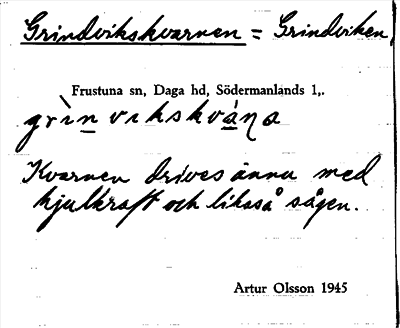 Grindvikskvarnen = Grindviken
Frustuna sn, Daga hd, Södermanlands l,.
grìn vikskváṇa
Kvarnen drives ännu med
hjulkraft och likså sågen.
Artur Olsson 1945